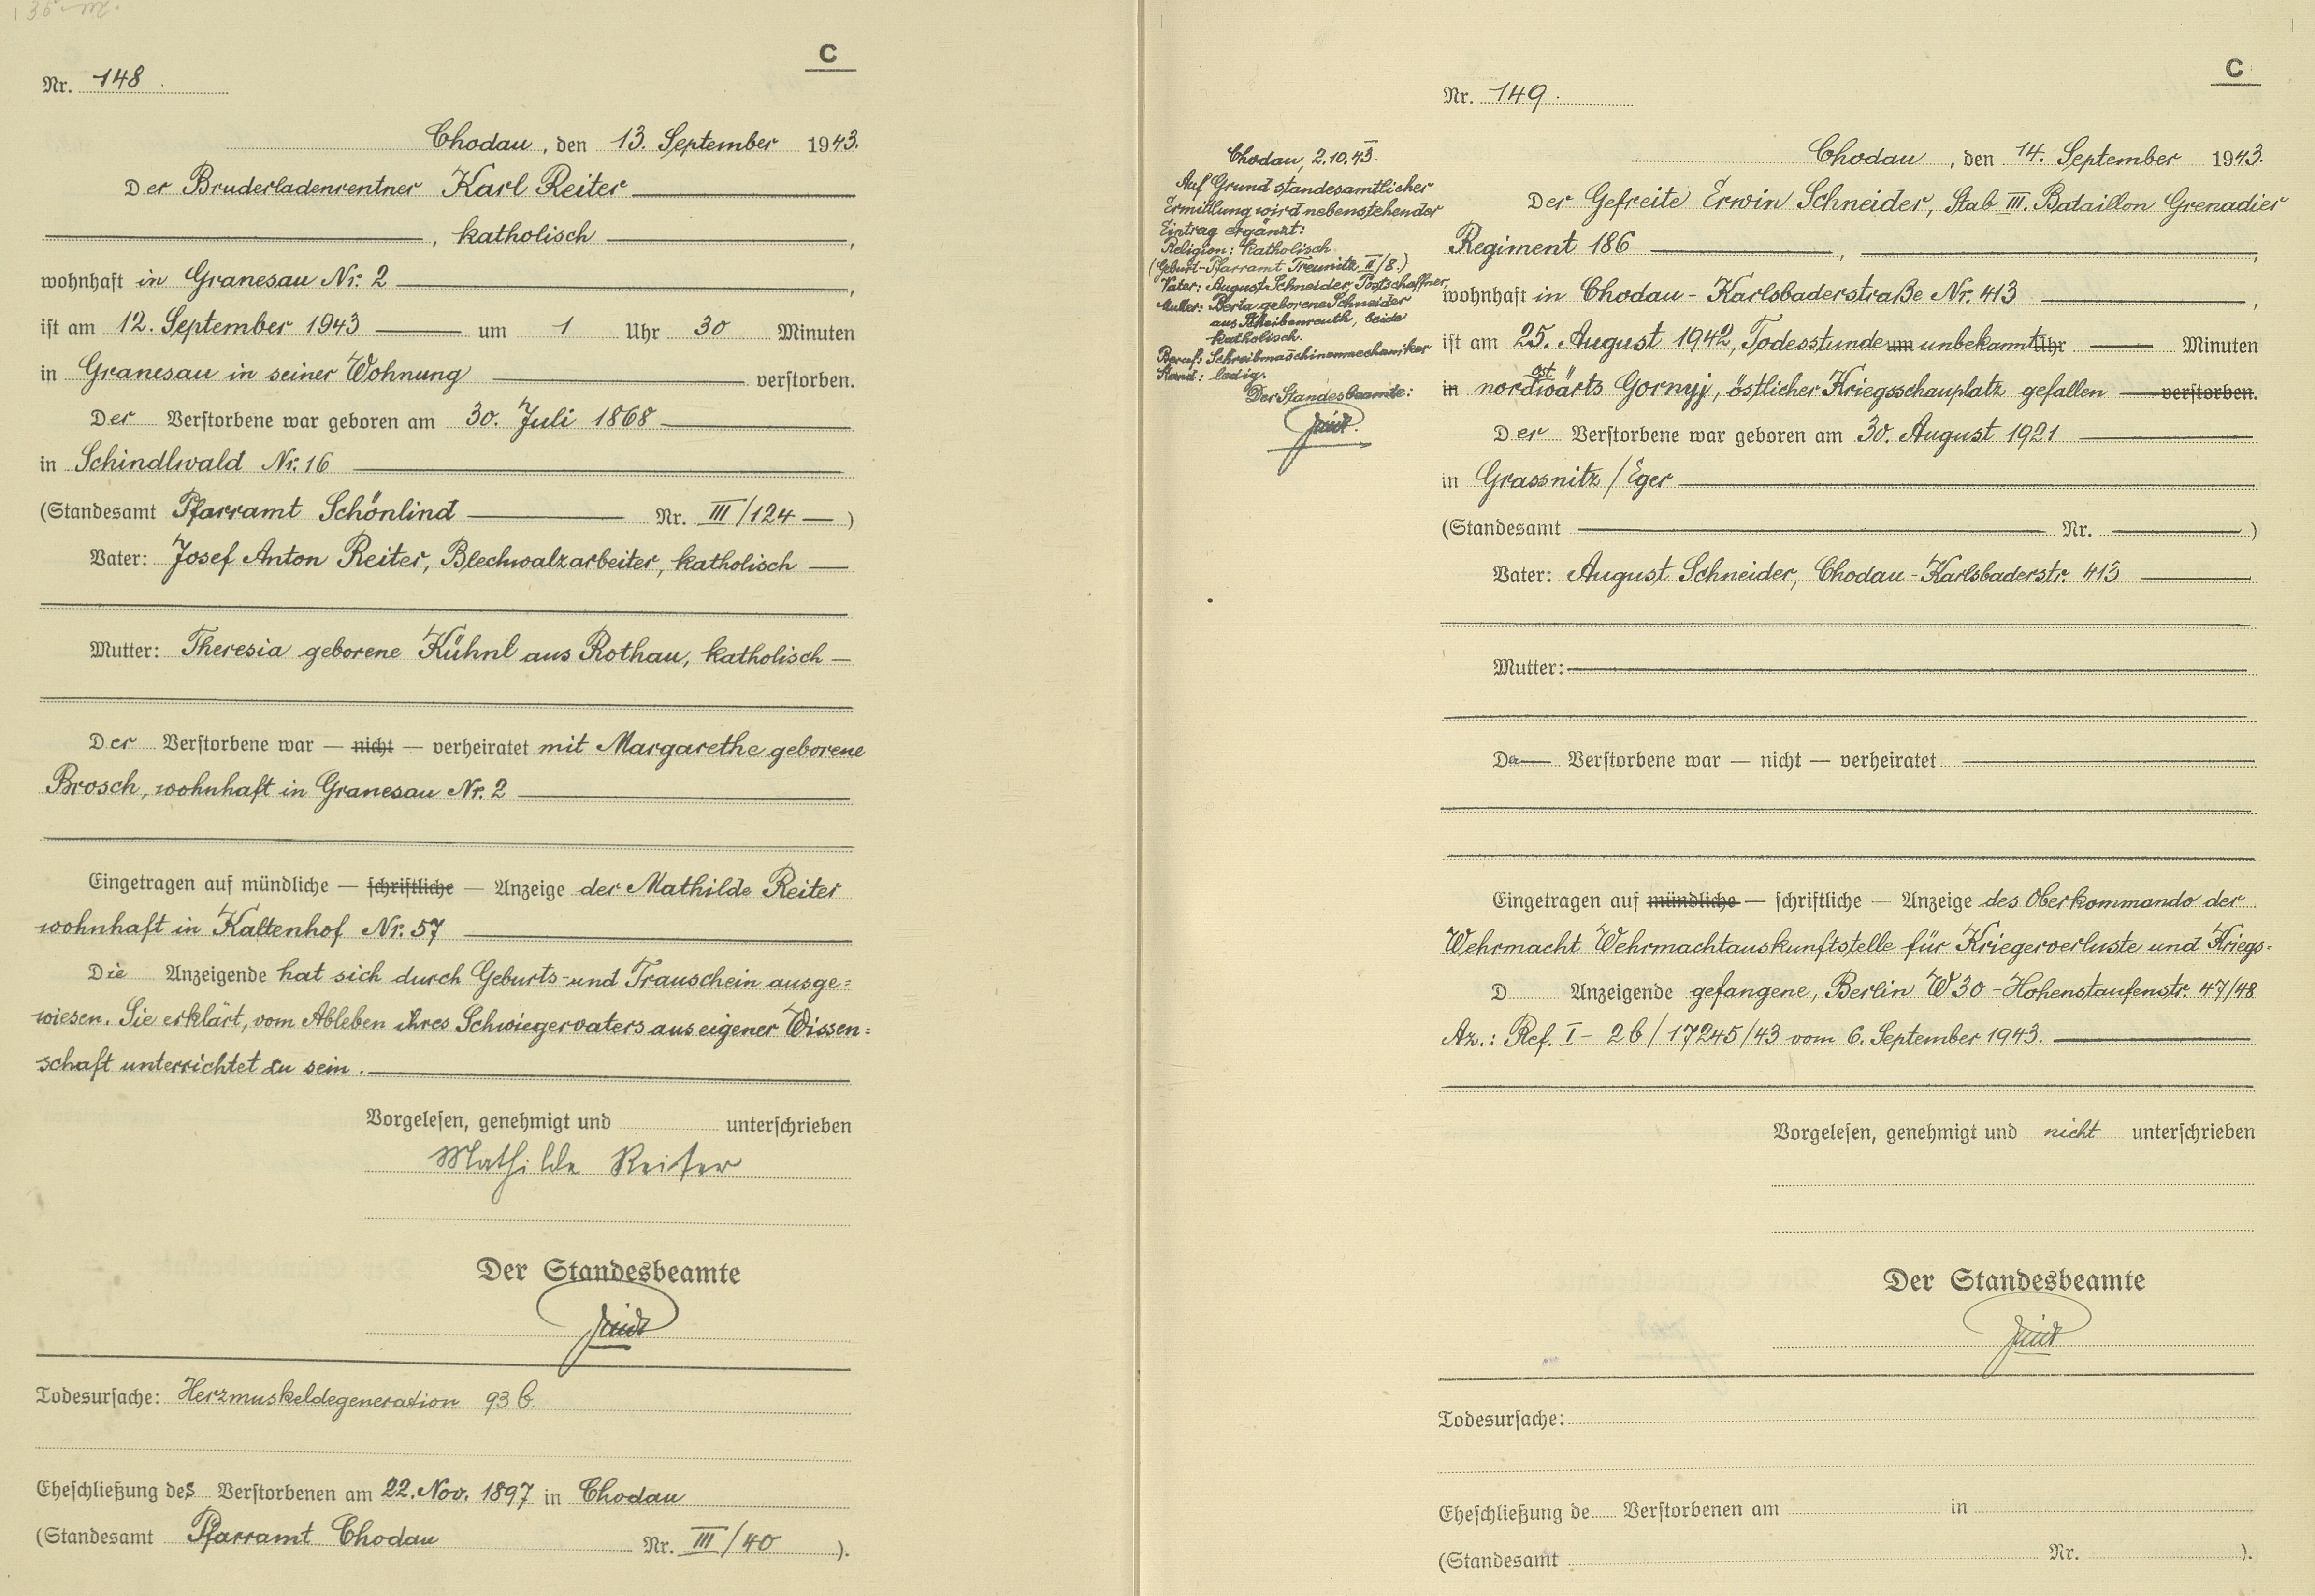 C
Nr. 148.
Chodau, den 13. September 1943.
Der Bruderladenrentner Karl Reiter
, katholisch ,
wohnhaft in Granesau Nr. 2 ,
ist am 12. September 1943 um 1 Uhr 30 Minuten
in Granesau in seiner Wohnung verstorben.
Der Verstorbene war geboren am 30. Juli 1868
in Schindlwald Nr. 16
(Standesamt Pfarramt Schönlind Nr. III/124 )
Vater: Josef Anton Reiter, Blechwalzarbeiter, katholisch
Mutter: Theresia geborene Kühnl aus Rothau, katholisch
Der Verstorbene war — nicht — verheiratet mit Margarethe geborene
Brosch, wohnhaft in Granesau Nr. 2
Eingetragen auf mündliche — schriftliche — Anzeige der Mathilde Reiter
wohnhaft in Kaltenhof Nr. 57
Die Anzeigende hat sich durch Geburts- und Trauschein ausge=
wiesen. Sie erklärt, vom Ableben ihres Schwiegervaters aus eigener Wissen=
schaft unterrichtet zu sein.
Vorgelesen, genehmigt und unterschrieben
Mathilde Reiter
Der Standesbeamte
Todesursache: Herzmuskeldegeneration 93 b.
Eheschließung des Verstorbenen am 22. Nov. 1897 in Chodau
(Standesamt Pfarramt Chodau Nr. III/40 ).
C
Nr. 149.
Chodau, den 14. September 1943.
Der Gefreite Erwin Schneider, Stab III. Bataillon Grenadier
Regiment 186 , ,
wohnhaft in Chodau - Karlsbaderstraße Nr. 413 ,
ist am 25. August 1942, Todesstunde um unbekannt Uhr Minuten
in nordostwärts Gornyj, östlicher Kriegsschauplatz gefallen verstorben.
Der Verstorbene war geboren am 30. August 1921
in Grassnitz / Eger
(Standesamt Nr. )
Vater: August Schneider, Chodau - Karlsbaderstr. 413
Mutter:
De Verstorbene war — nicht — verheiratet
Eingetragen auf mündliche — schriftliche — Anzeige des Oberkommando der
Wehrmacht Wehrmachtauskunftstelle für Kriegerverluste und Kriegs=
D Anzeigende gefangene, Berlin W 30 - Hohenstaufenstr. 47/48
Az.: Ref. I - 2 b / 17245/43 vom 6. September 1943.
Vorgelesen, genehmigt und nicht unterschrieben
Der Standesbeamte
Todesursache:
Eheschließung de Verstorbenen am in
(Standesamt Nr. ).
Chodau, 2.10.43.
Auf Grund standesamtlicher
Ermittlung wird nebenstehender
Eintrag ergänzt:
Religion: katholisch
(Geburt - Pfarramt Treunitz II/8.)
Vater: August Schneider, Postschaffner,
Mutter: Berta geborene Schneider
aus Scheibenreuth, beide
katholisch.
Beruf: Schreibmaschinenmechaniker
Stand: ledig.
Der Standesbeamte: